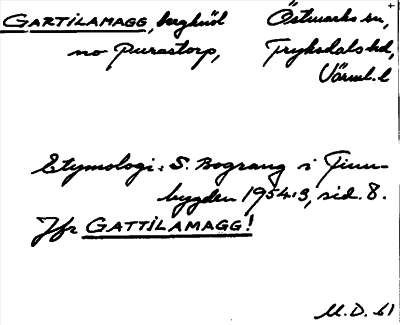 GARTILAMAGG, bergkúl Östmarks sn,
no Purastorp, Fryksdals hd,
Värml. l
Etymologi: S. Bograng i Finn-
bygden 1954:3, sid. 8.
Jfr GATTILAMAGG!
M.D. 61